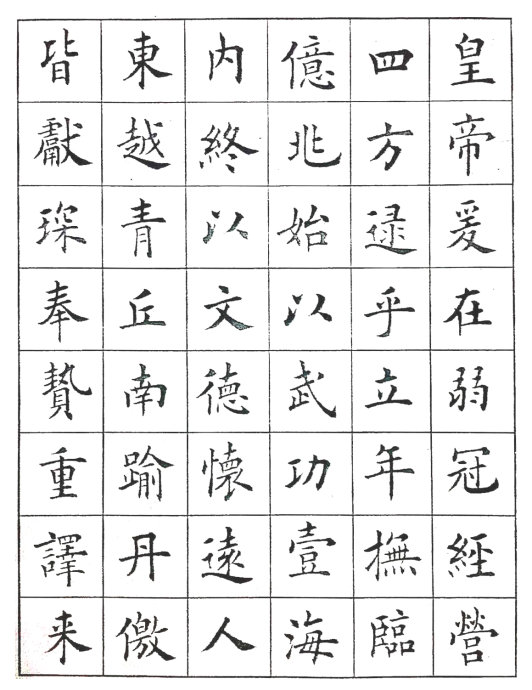 皇帝爰在弱冠經營
四方逯乎立年撫臨
億兆始以武功壹海
內終以文德懷遠人
東越青丘南踰丹儌
皆獻琛奉贄重譯来